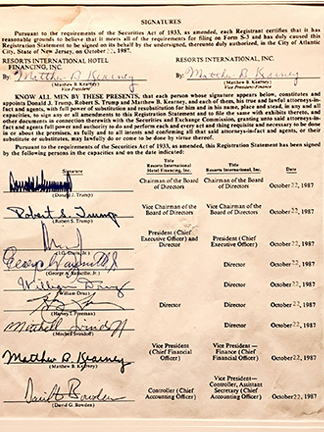 SIGNATURES
Pursuant to the requirements of the Securities Act of 1933, as amended, each Registrant certifies that it has
reasonable grounds to believe that it meets all of the requirements for filing on Form S-3 and has duly caused this
Registration Statement to be signed on its behalf by the undersigned, thereunto duly authorized, in the City of Atlantic
City, State of New Jersey, on October 22, 1987.
RESORTS INTERNATIONAL HOTEL FINANCING, INC. RESORTS INTERNATIONAL, INC.
By: Matthew B. Kearney By: Matthew B. Kearney
(Matthew B. Kearney) (Matthew B. Kearney)
Vice President Vice President-Finance
KNOW ALL MEN BY THESE PRESENTS, that each person whose signature appears below, constitutes and
appoints Donald J. Trump, Robert S. Trump and Matthew B. Kearney, and each of them, his true and lawful attorneys-in-
fact and agents, with full power of substitution and resubstitution for him and in his name, place and stead, in any and all
capacities, to sign any or all amendments to this Registration Statement and to file the same with exhibits thereto, and
other documents in connection therewith with the Securities and Exchange Commission, granting unto said attorneys-in-
fact and agents full power and authority to do and perform each and every act and thing requisite and necessary to be done
in or about the premises, as fully and to all intents and confirming all that said attorneys-in-fact and agents, or their
substitutes, or them may lawfully do or cause to be done by virtue thereof.
Pursuant to the requirements of the Securities Act of 1933, as amended, this Registration Statement has been signed
by the following persons in the capacities and at the date indicated:
Signature Title Resorts International Hotel Financing, Inc. Title Resorts International, Inc. Date
(Donald J. Trump) Chairman of the Board of Directors Chairman of the Board of Directors October 22, 1987
Robert S. Trump
(Robert S. Trump) Vice Chairman of the Board of Directors Vice Chairman of the Board of Directors October 22, 1987
President (Chief Executive Officer) and Director President (Chief Executive Officer) October 22, 1987
Director October 22, 1987
Director October 22, 1987
(Harvey I. Freeman) Director Director October 22, 1987
Director October 22, 1987
Matthew B. Kearney
(Matthew B. Kearney) Vice President (Chief Financial Officer) Vice President — Finance (Chief Financial Officer) October 22, 1987
David G. Bowden
(David G. Bowden) Controller (Chief Accounting Officer) Vice President — Controller, Assistant Secretary (Chief Accounting Officer) October 22, 1987